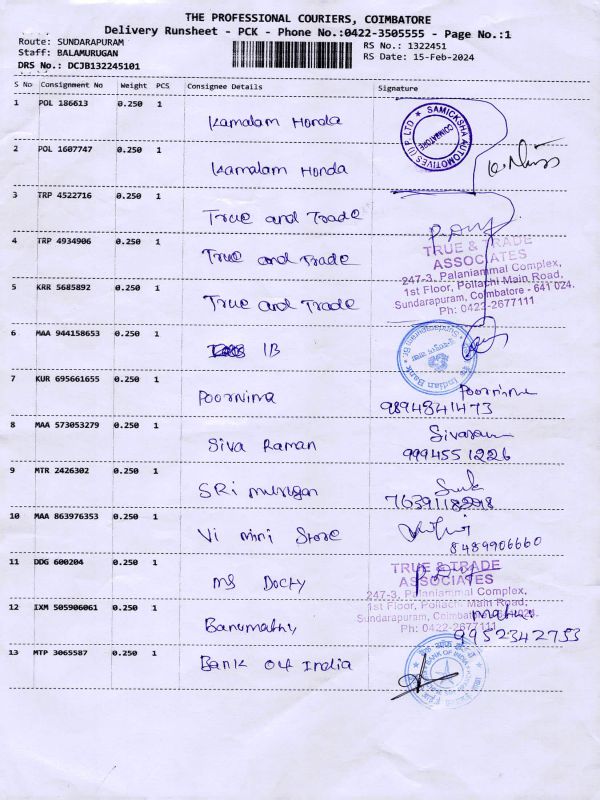 THE PROFESSIONAL COURIERS, COIMBATORE
Delivery Runsheet - PCK - Phone No.:0422-3505555 - Page No.:1
Route: SUNDARAPURAM
RS No.: 1322451
Staff: BALAMURUGAN
RS Date: 15-Feb-2024
DRS No.: DCJB132245101
S No Consignment No Weight PCS Consignee Details Signature
1 POL 186613 0.250 1 Kamalam Honda
SAMICKSHA AUTOMOTIVES (I) P LTD ★ COIMBATORE
2 POL 1607747 0.250 1 Kamalam Honda
3 TRP 4522716 0.250 1 True and Trade
4 TRP 4934906 0.250 1 True and Trade
TRUE & TRADE
ASSOCIATES
247-3, Palaniammal Complex,
1st Floor, Pollachi Main Road,
Sundarapuram, Coimbatore - 641 024.
Ph: 0422-2677111
5 KRR 5685892 0.250 1 True and Trade
6 MAA 944158653 0.250 1 IB
Indian Bank
Sundarapuram Br.
7 KUR 695661655 0.250 1 Poornima Poornima
9894841473
8 MAA 573053279 0.250 1 Siva Raman Sivaram
9994551226
9 MTR 2426302 0.250 1 SRi murugan
10 MAA 863976353 0.250 1 Vi mini Store
8489906660
11 DDG 600204 0.250 1 MS Docty
TRUE & TRADE
ASSOCIATES
247-3, Palaniammal Complex,
1st Floor, Pollachi Main Road,
Sundarapuram, Coimbatore - 641 024.
Ph: 0422-2677111
12 IXM 505906061 0.250 1 Banumathy
9952342753
13 MTP 3065587 0.250 1 Bank Of India
BANK OF INDIA